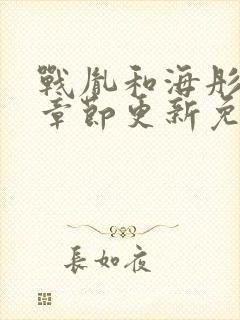 戰胤和海彤
章節更新免
長如夜